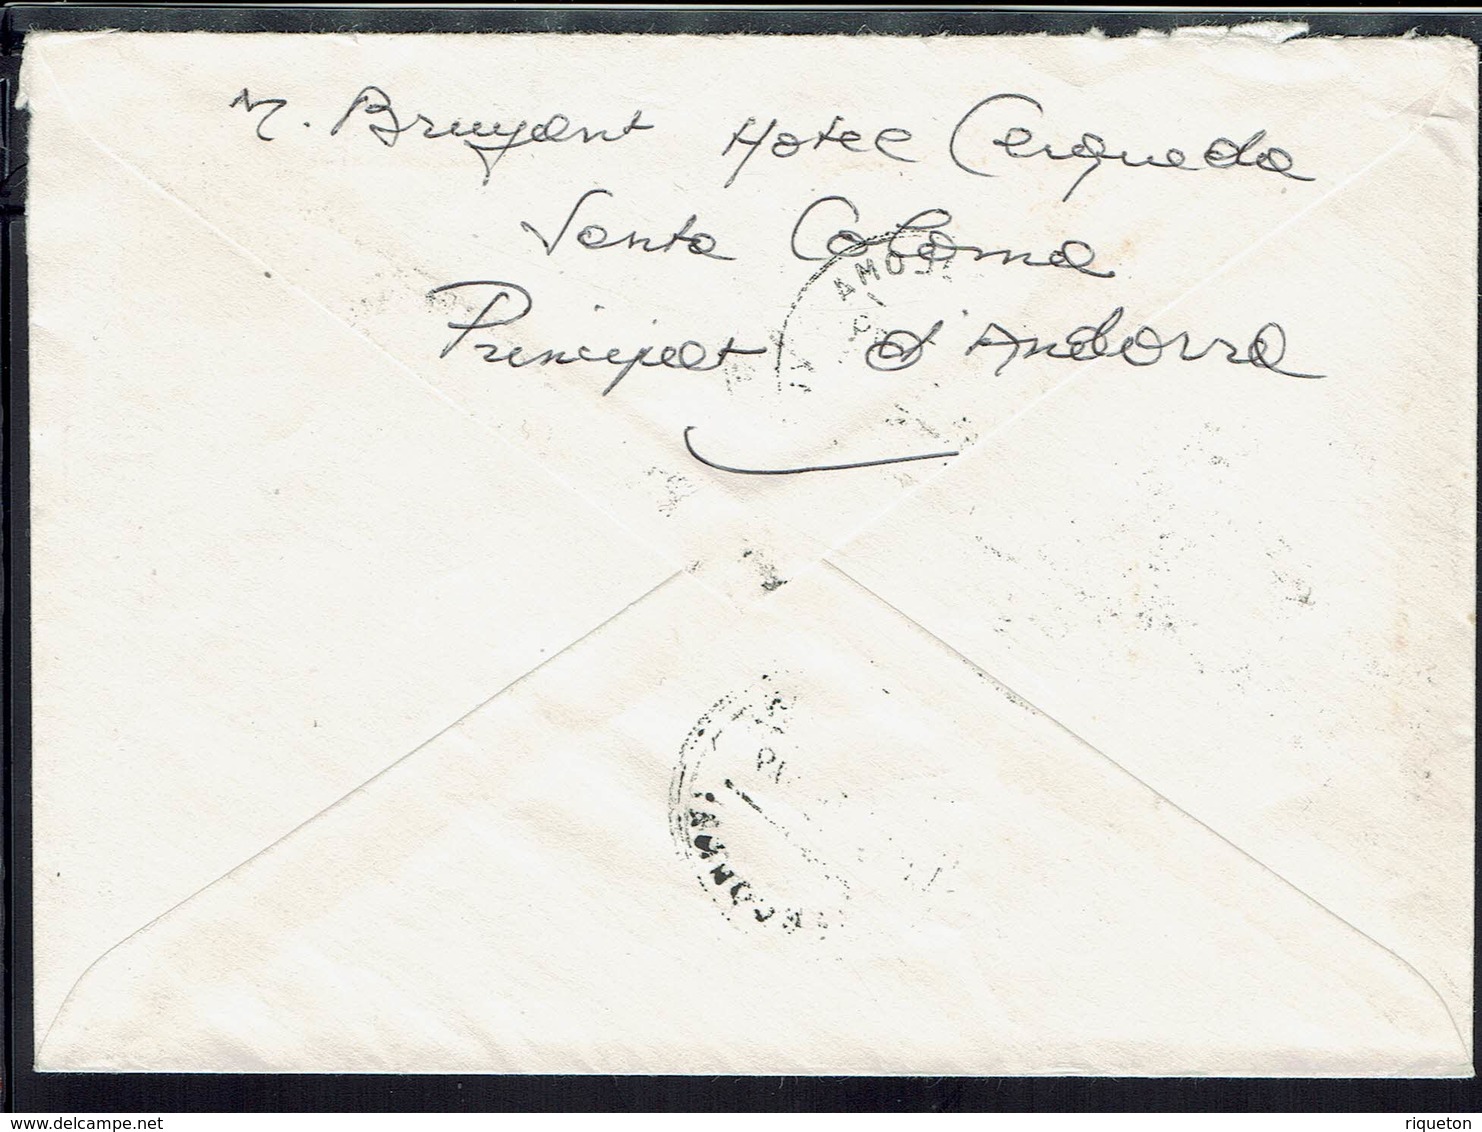 M. Bruyant Hotel Cerqueda
Santa Coloma
Principat d'Andorra
delcampe.net
riqueton